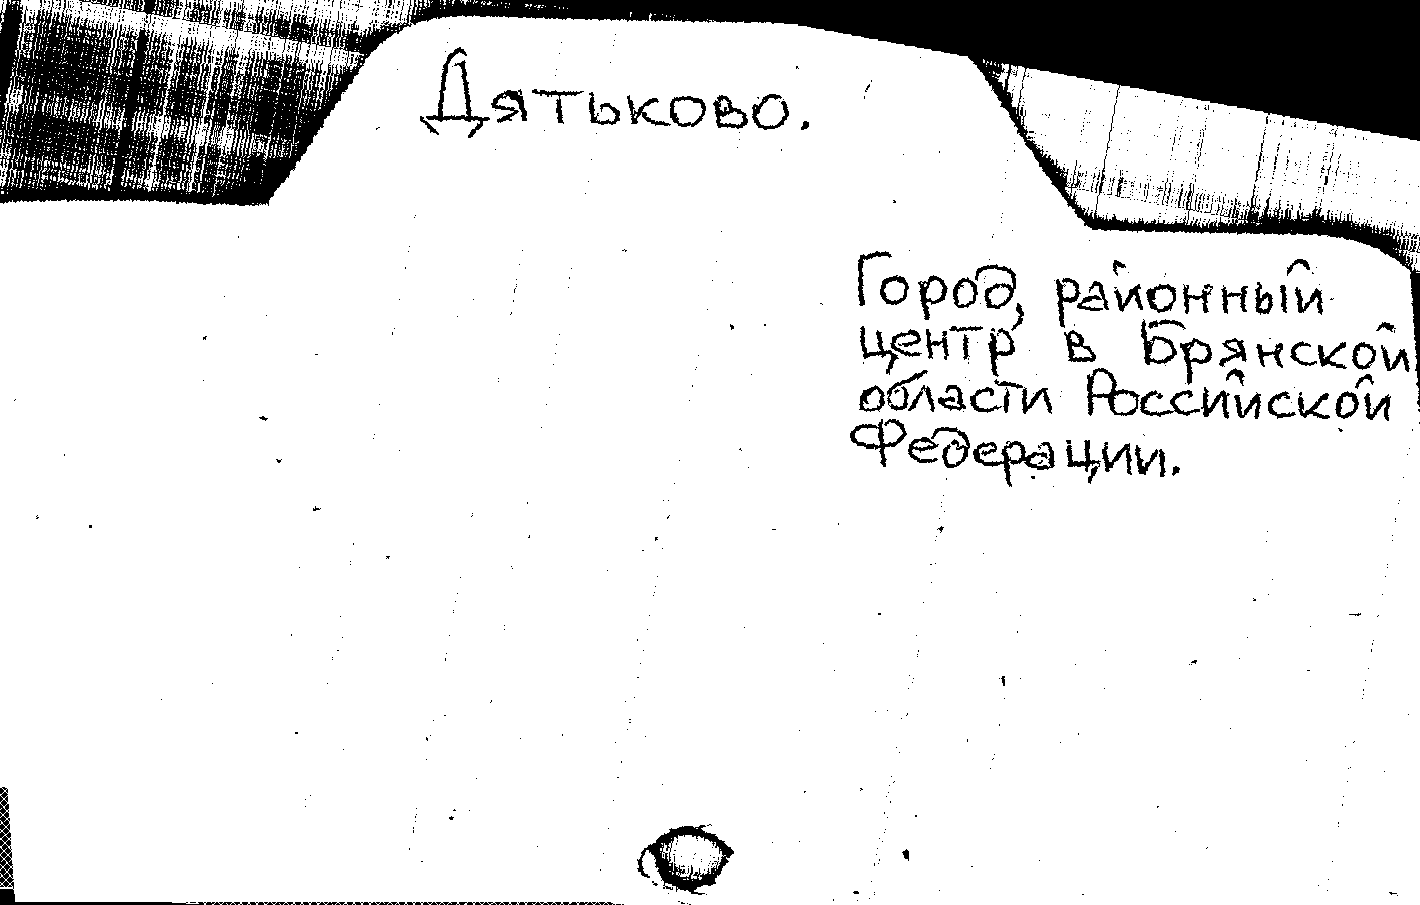 Дятьково.
Город, районный
центр в Брянской
области Российской
Федерации.